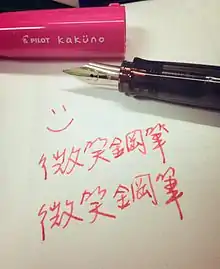 PILOT kaküno
微笑鋼筆
微笑鋼筆